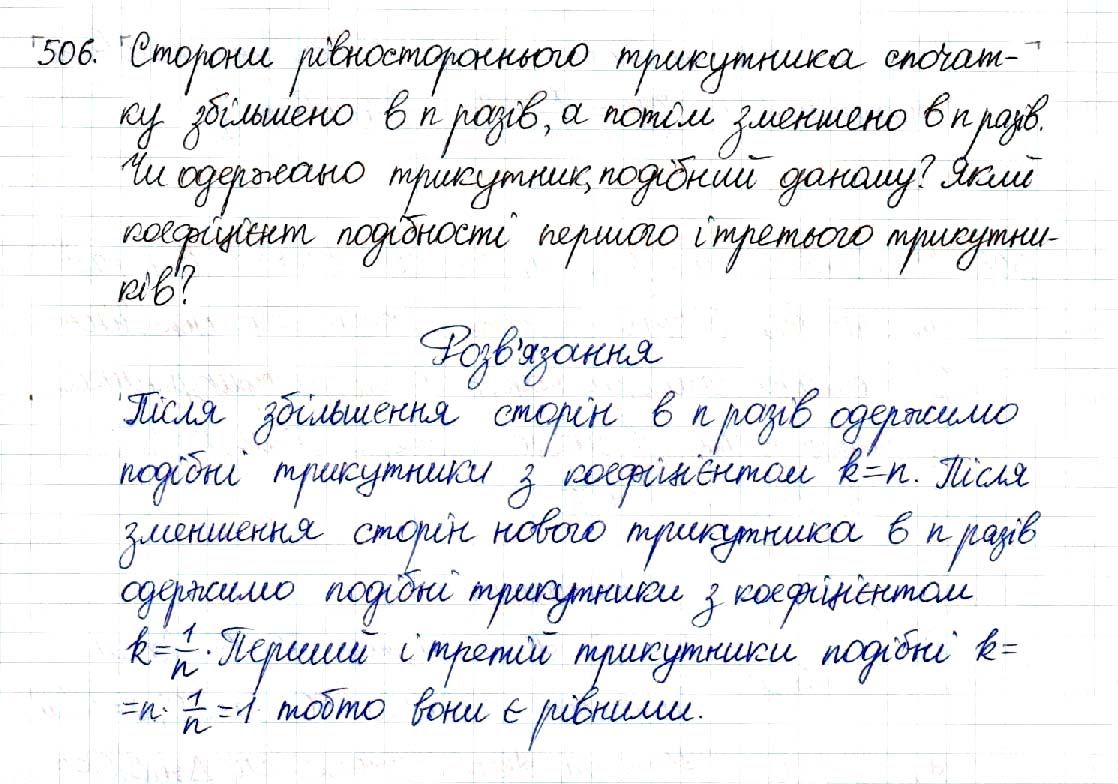 506. Сторони рівностороннього трикутника спочат-
ку збільшено в n разів, а потім зменшено в n разів.
Чи одержано трикутник, подібний даному? Який
коефіцієнт подібності першого і третього трикутни-
ків?
Розв'язання
Після збільшення сторін в n разів одержимо
подібні трикутники з коефіцієнтом k=n. Після
зменшення сторін нового трикутника в n разів
одержимо подібні трикутники з коефіцієнтом
k=1/n. Перший і третій трикутники подібні k=
=n·1/n=1 тобто вони є рівними.